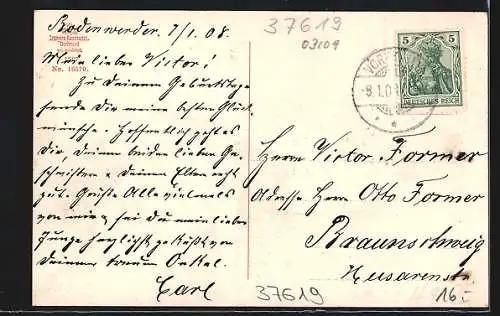 Bodenwerder. 7/1. 08.
Mein lieber Victor!
Zu Deinem Geburtstage
sende Dir meine besten Glück-
wünsche. Hoffentlich geht es
Dir, Deinen beiden lieben Ge-
schwistern & Deinen Eltern recht
gut. Grüsse Alle vielmals
von mir & sei Du mein lieber
Junge herzlichst geküsst von
Deinem treuen Onkel
Carl
No. 16570.
37619
03109
5 5
DEUTSCHES REICH
8.1.0
Herrn Victor Former
Adresse Herrn Otto Former
Braunschweig
Husarenstr.
37619
16.-